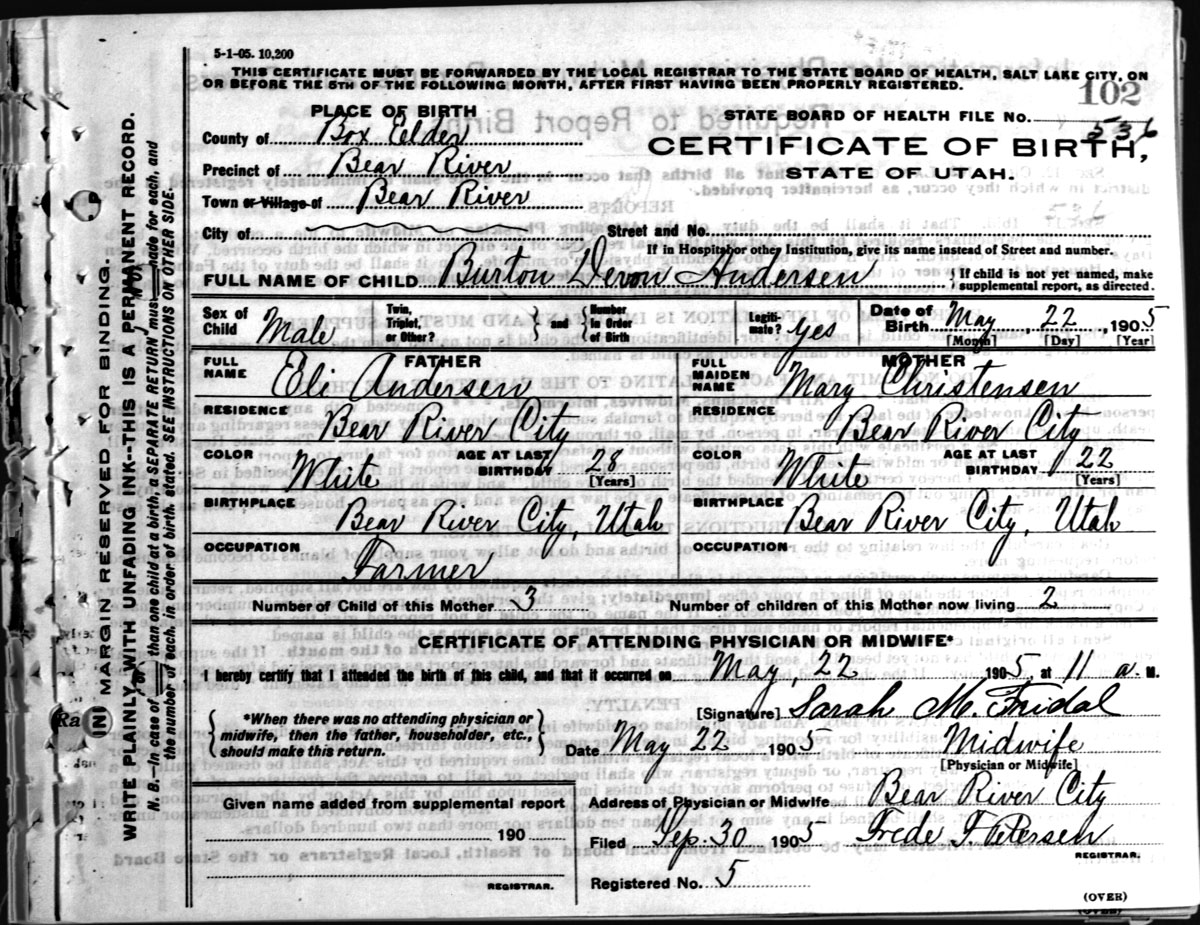 5-1-05. 10,200
THIS CERTIFICATE MUST BE FORWARDED BY THE LOCAL REGISTRAR TO THE STATE BOARD OF HEALTH, SALT LAKE CITY, ON
OR BEFORE THE 5TH OF THE FOLLOWING MONTH, AFTER FIRST HAVING BEEN PROPERLY REGISTERED.
102
PLACE OF BIRTH
STATE BOARD OF HEALTH FILE No. 536
County of Box Elder
CERTIFICATE OF BIRTH,
Precinct of Bear River
STATE OF UTAH.
Town or Village of Bear River
536
City of
Street and No.
If in Hospital or other Institution, give its name instead of Street and number.
FULL NAME OF CHILD Burton Devon Andersen
{ If child is not yet named, make
supplemental report, as directed.
Sex of Child Male
Twin, Triplet, or Other? } and { Number, in Order of Birth
Legiti-mate? yes
Date of Birth May, 22, 1905
[Month] [Day] [Year]
FATHER
FULL NAME Eli Andersen
MOTHER
FULL MAIDEN NAME Mary Christensen
RESIDENCE Bear River City
RESIDENCE Bear River City
COLOR White
AGE AT LAST BIRTHDAY 28
[Years]
COLOR White
AGE AT LAST BIRTHDAY 22
[Years]
BIRTHPLACE Bear River City, Utah
BIRTHPLACE Bear River City, Utah
OCCUPATION Farmer
OCCUPATION
Number of Child of this Mother 3
Number of children of this Mother now living 2
CERTIFICATE OF ATTENDING PHYSICIAN OR MIDWIFE*
I hereby certify that I attended the birth of this child, and that it occurred on May, 22 1905, at 11 a. M.
[Signature] Sarah M. Fridal
{ *When there was no attending physician or
midwife, then the father, householder, etc.,
should make this return. }
Date May 22 1905
Midwife
[Physician or Midwife]
Given name added from supplemental report
190
REGISTRAR.
Address of Physician or Midwife Bear River City
Filed Sep. 30 1905 Frede F. Petersen
REGISTRAR.
Registered No. 5
(OVER)
(OVER)
MARGIN RESERVED FOR BINDING
WRITE PLAINLY WITH UNFADING INK--THIS IS A PERMANENT RECORD.
N. B.--In case of more than one child at a birth, a SEPARATE RETURN must be made for each, and
the number of each, in order of birth, stated. SEE INSTRUCTIONS ON OTHER SIDE.